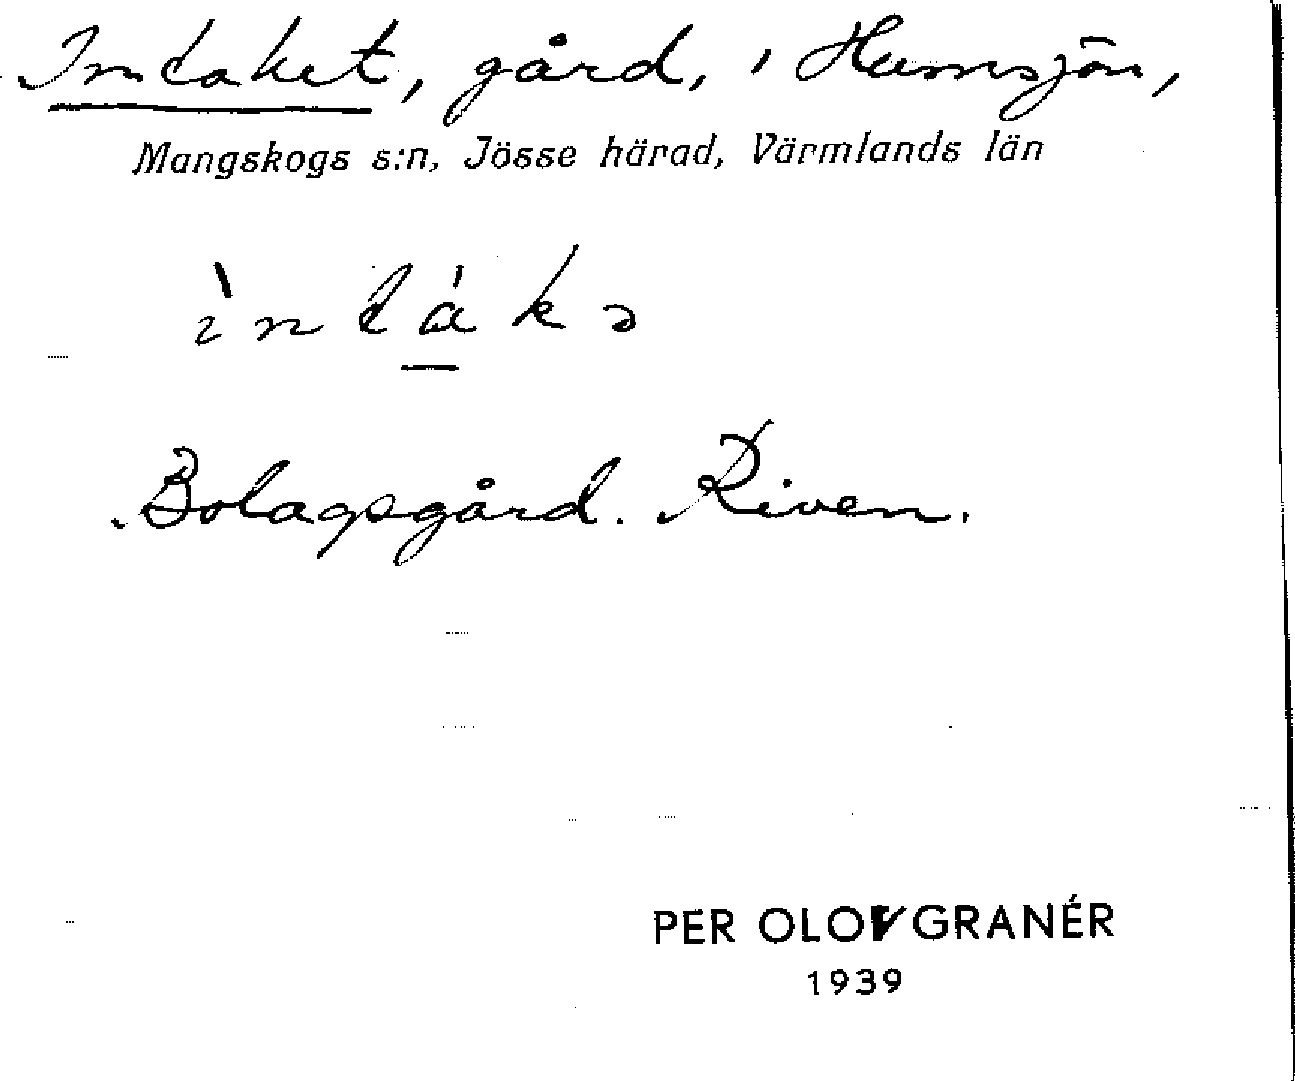 Intaket, gård, i Humsjön,
Mangskogs s:n, Jösse härad, Värmlands län
ìntákə
Bolagsgård. Riven.
PER OLOV GRANÉR
1939